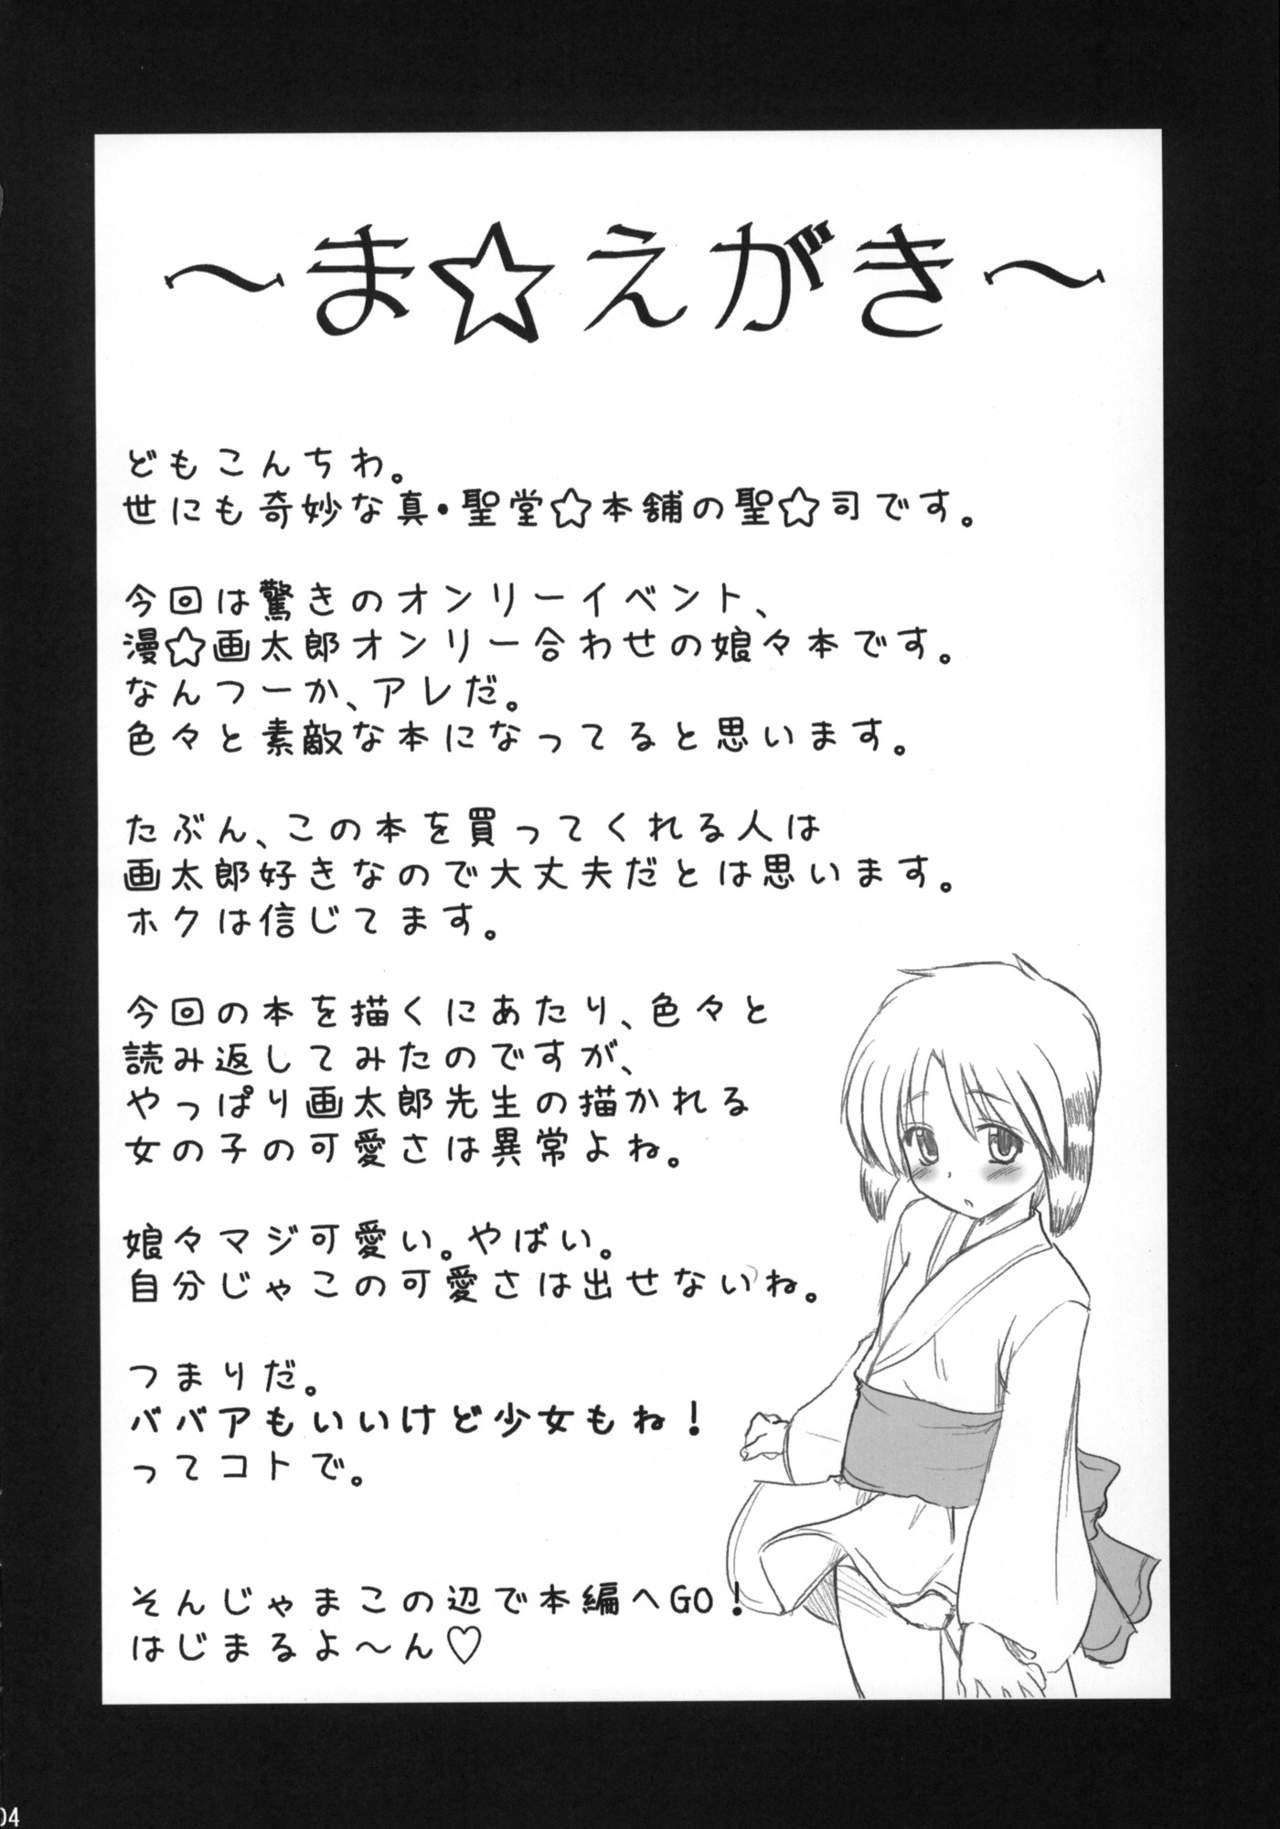 ～ま☆えがき～
どもこんちわ。
世にも奇妙な真・聖堂☆本舗の聖☆司です。
今回は驚きのオンリーイベント、
漫☆画太郎オンリー合わせの娘々本です。
なんつーか、アレだ。
色々と素敵な本になってると思います。
たぶん、この本を買ってくれる人は
画太郎好きなので大丈夫だとは思います。
ホクは信じてます。
今回の本を描くにあたり、色々と
読み返してみたのですが、
やっぱり画太郎先生の描かれる
女の子の可愛さは異常よね。
娘々マジ可愛い。やばい。
自分じゃこの可愛さは出せないね。
つまりだ。
ババアもいいけど少女もね！
ってコトで。
そんじゃまこの辺で本編へGO！
はじまるよ～ん♡
04